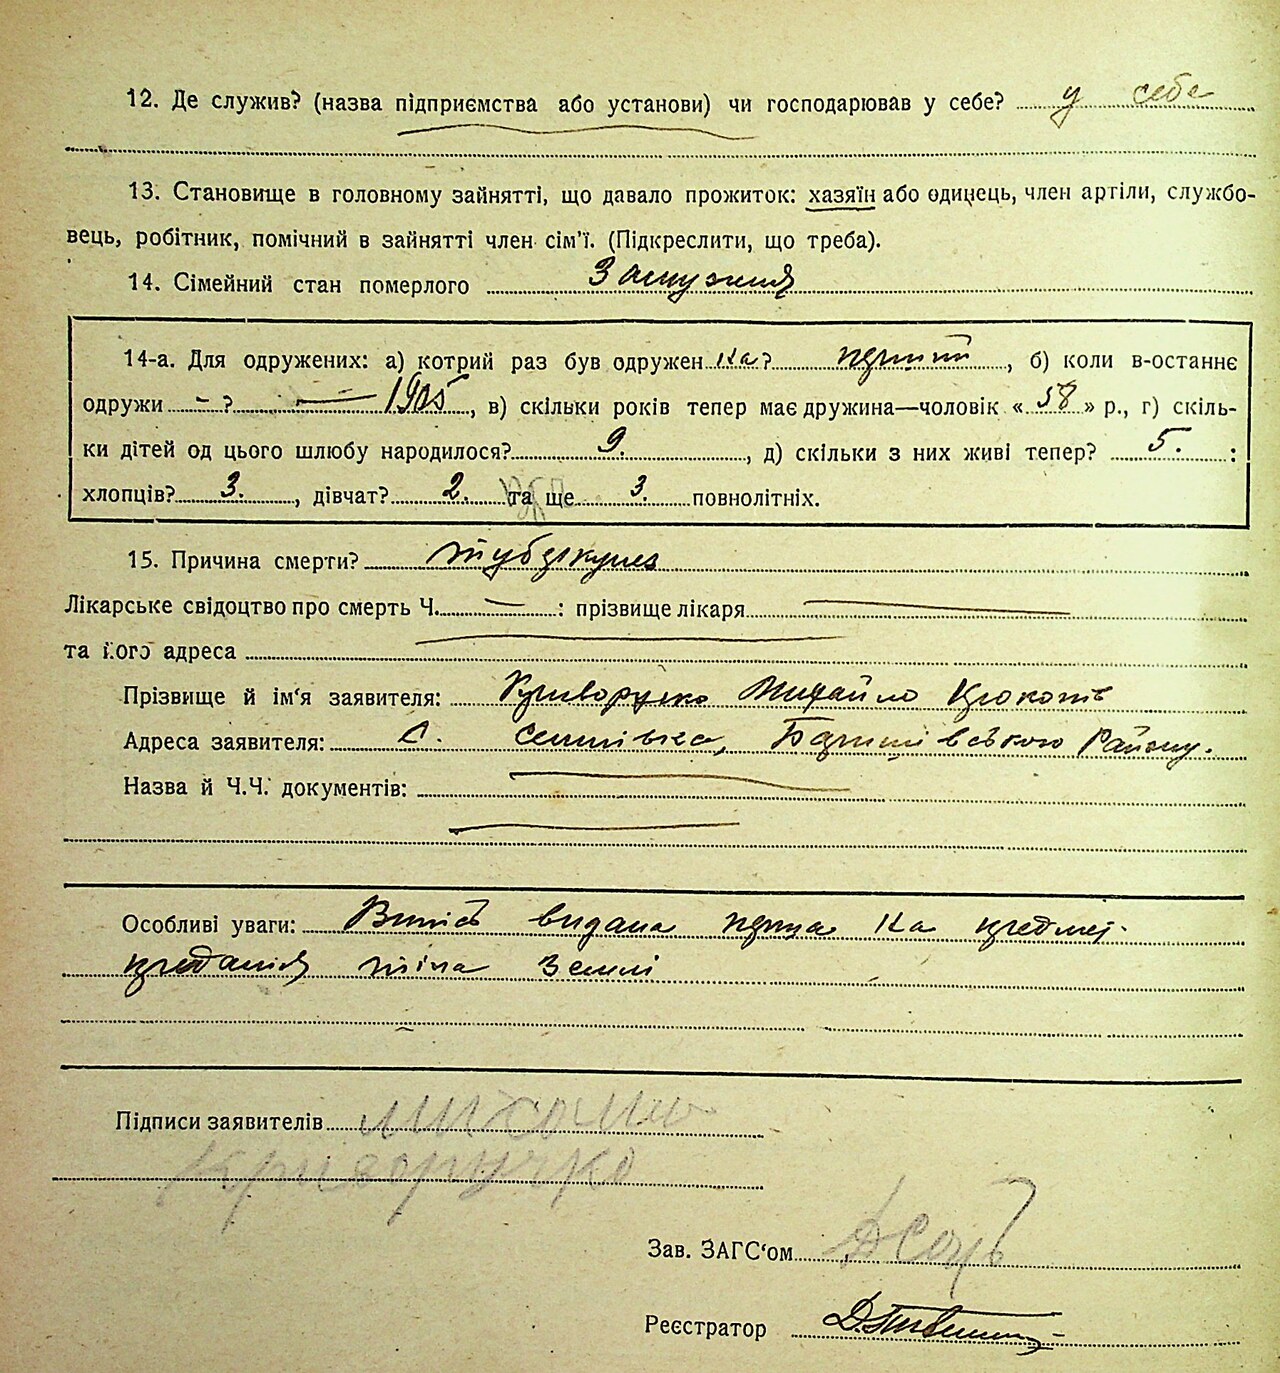 12. Де служив? (назва підприємства або установи) чи господарював у себе? у себе
13. Становище в головному зайнятті, що давало прожиток: хазяїн або одинець, член артіли, службо-
вець, робітник, помічний в зайнятті член сім'ї. (Підкреслити, що треба).
14. Сімейний стан померлого Замужня
14-а. Для одружених: а) котрий раз був одружен ка? перший, б) коли в-останнє
одружи - ? 1905, в) скільки років тепер має дружина—чоловік «58» р., г) скіль-
ки дітей од цього шлюбу народилося? 9., д) скільки з них живі тепер? 5. :
хлопців? 3., дівчат? 2. та ще 3. повнолітніх.
15. Причина смерти? туберкульоз
Лікарське свідоцтво про смерть Ч. — : прізвище лікаря
та його адреса
Прізвище й ім'я заявителя: Криворучко Михайло Прокопів
Адреса заявителя: с. Семенівка, Баришівського Району.
Назва й Ч.Ч. документів:
Особливі уваги: Випіс видана перша на предмет
предания тіла землі
Підписи заявителів
Криворучко
Зав. ЗАГС'ом
Реєстратор